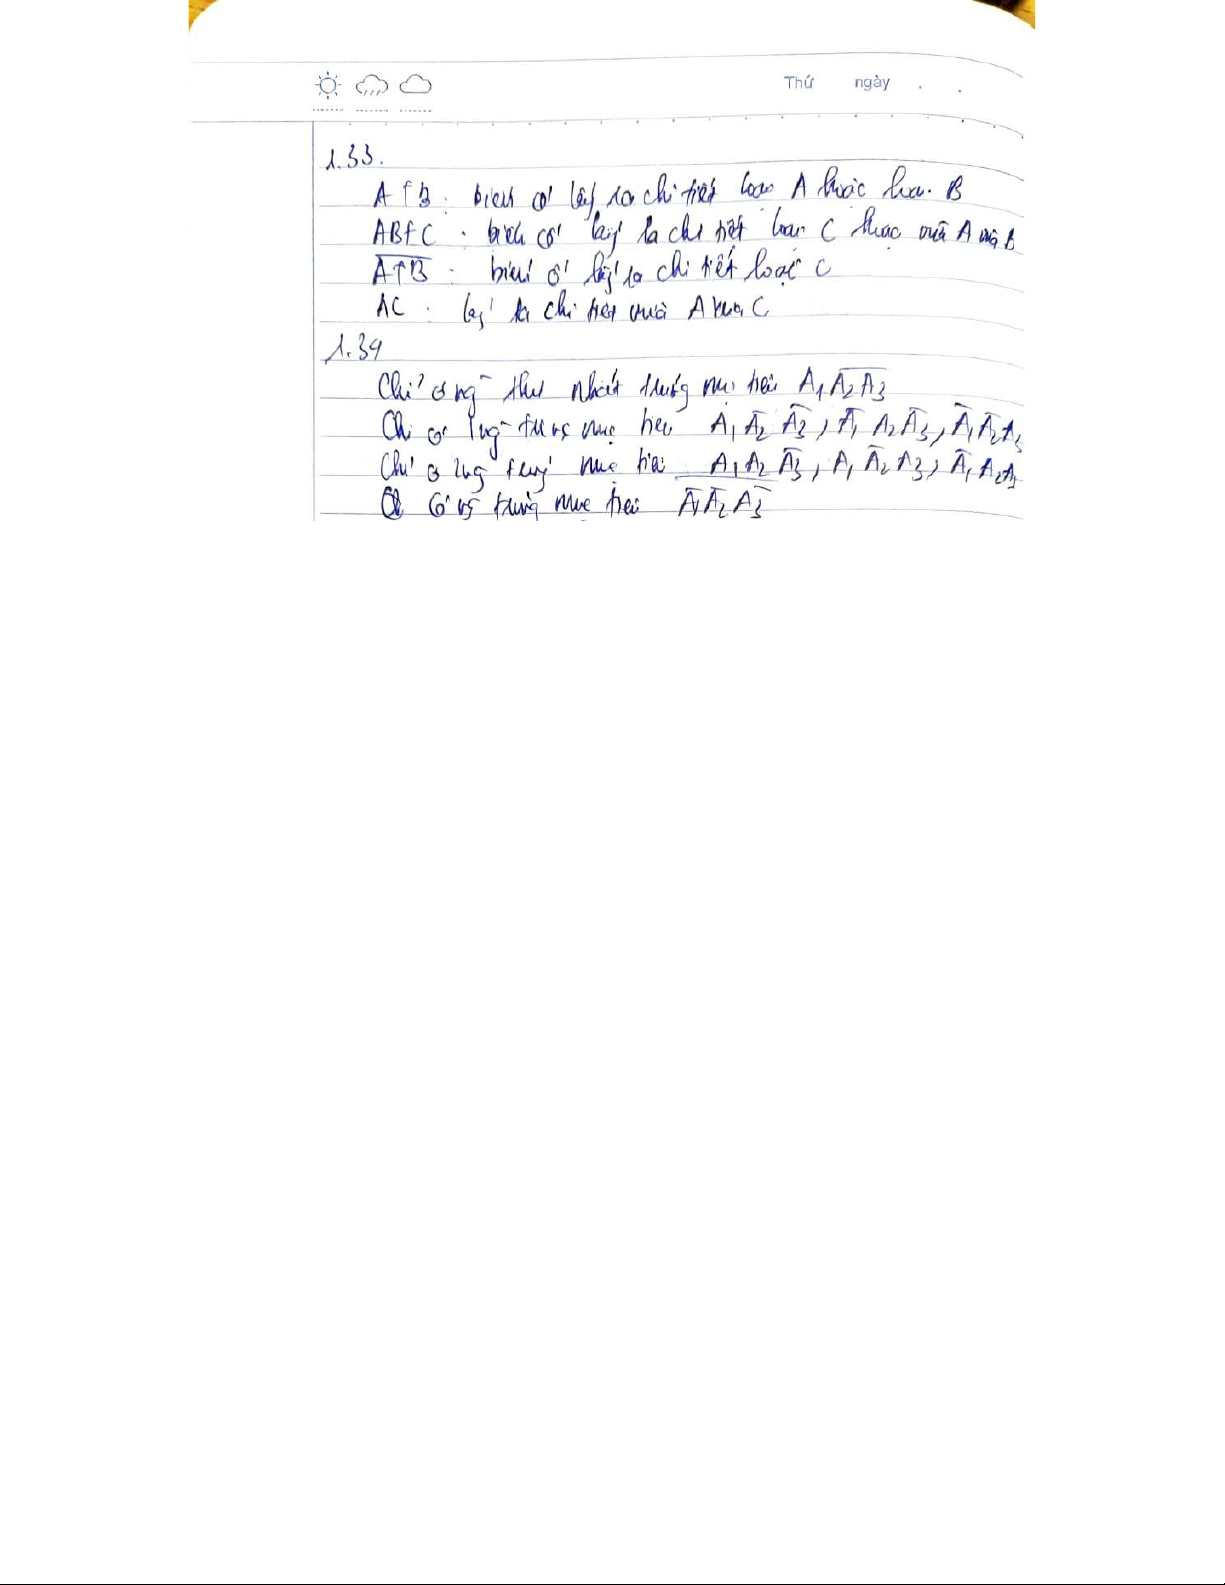 Thứ ngày . .
1.33.
A+B : biến cố lấy ra chi tiết loại A hoặc loại B
AB+C : biến cố lấy ra chi tiết loại C hoặc vừa A vừa B
A̅+̅B̅ : biến cố lấy ra chi tiết loại C
AC : lấy ra chi tiết vừa A vừa C
1.34
Chỉ có ng thứ nhất trúng mục tiêu A₁ A̅₂A̅₃
Chỉ có 1 ng trúng mục tiêu A₁ A̅₂ A̅₃, A̅₁ A₂ A̅₃, A̅₁ A̅₂ A₃
Chỉ có 2 ng trúng mục tiêu A₁ A₂ A̅₃, A₁ A̅₂ A₃, A̅₁ A₂ A₃
Có ng trúng mục tiêu A̅₁ A̅₂ A̅₃